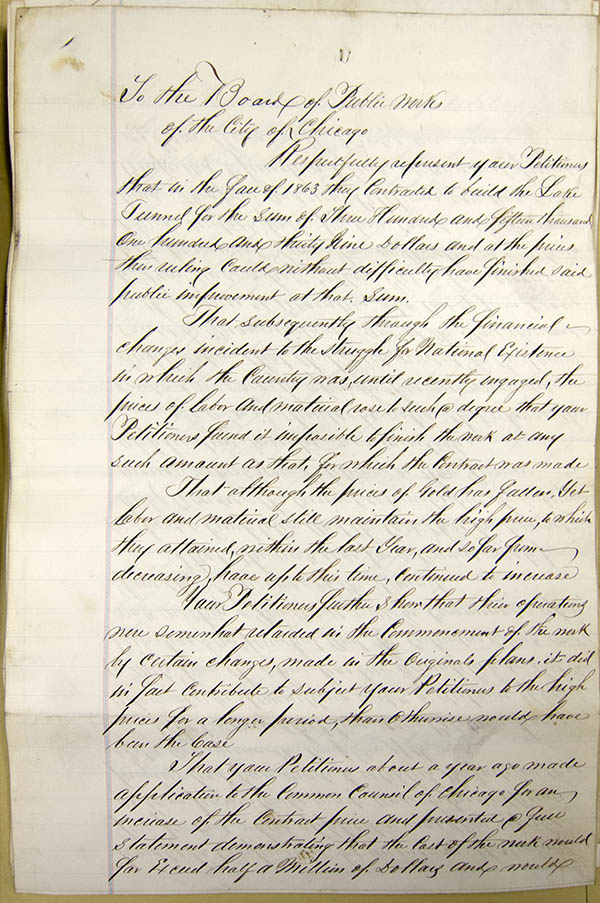 To the Board of Public works
of the City of Chicago
Respectfully represent your Petitioners
that in the Year of 1863 they Contracted to build the Lake
Tunnel for the Sum of Three Hundred and fifteen thousand
One hundred and thirty Nine Dollars and at the prices
then ruling Could without difficulty have finished said
public improvement at that Sum.
That subsequently through the financial
changes incident to the Struggle for National Existence
in which the Country was, until recently engaged, the
prices of Labor and material rose to such a degree that your
Petitioners found it impossible to finish the work at any
such amount as that, for which the Contract was made
That although the prices of Gold has fallen, Yet
Labor and material still maintain the high price, to which
they attained, within the last Year, and so far from
decreasing, have up to this time, Continued to increase
Your Petitioners further show that their operations
were somewhat retarded in the Commencement of the work
by certain changes, made in the Original plans. it did
in fact Contribute to subject your Petitioners to the high
prices for a longer period, than Otherwise would have
been the Case
That your Petitioners about a year ago made
application to the Common Council of Chicago for an
increase of the Contract price and presented a full
statement demonstrating that the Cost of the work would
far Exceed half a Million of Dollars and would